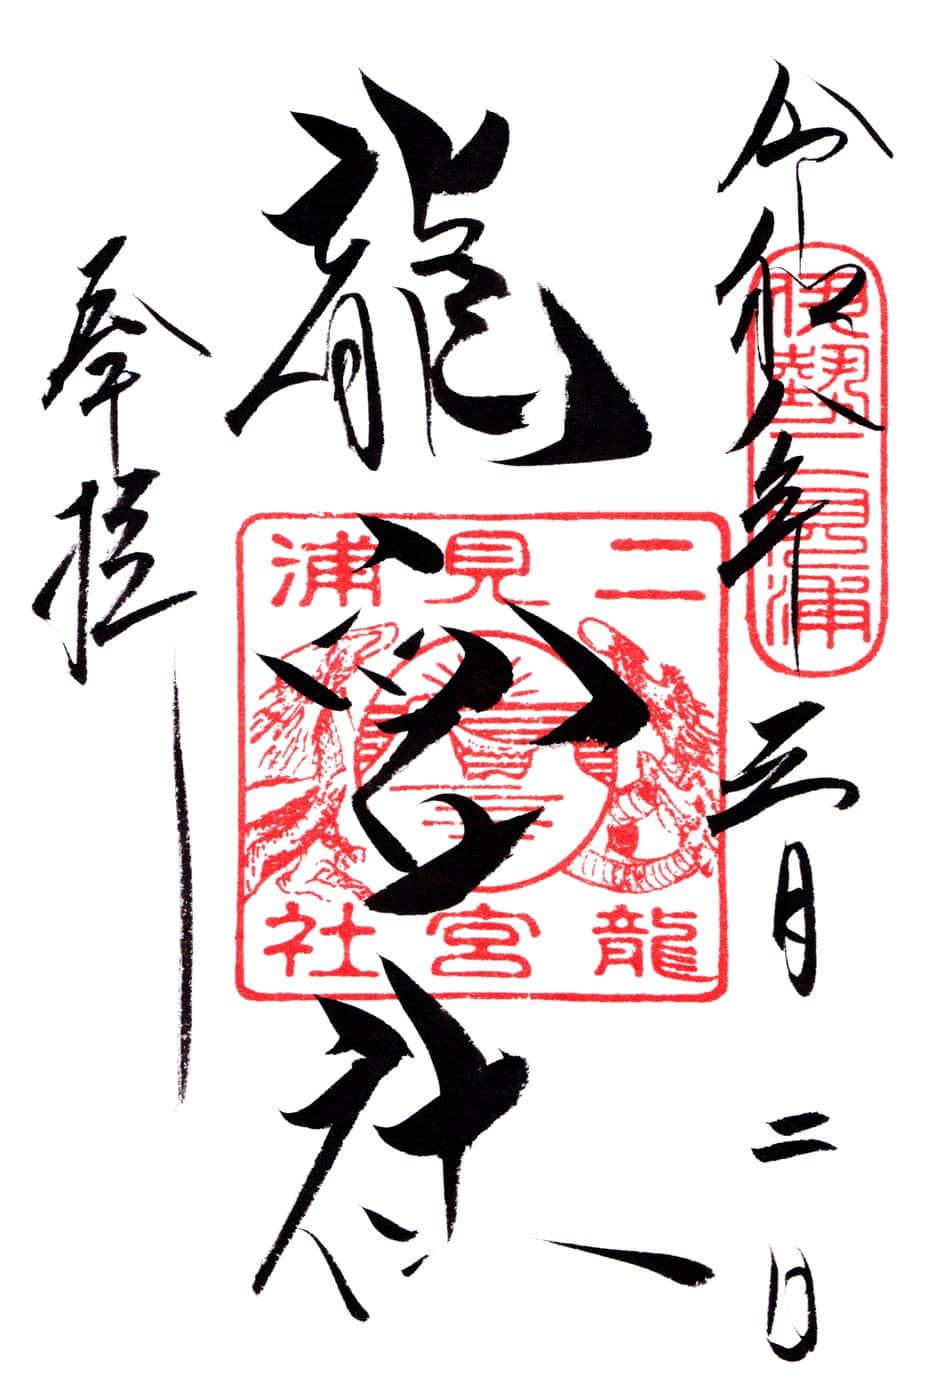 令和八年三月二日
伊勢二見浦
龍宮社
二見浦
龍宮社
奉拝